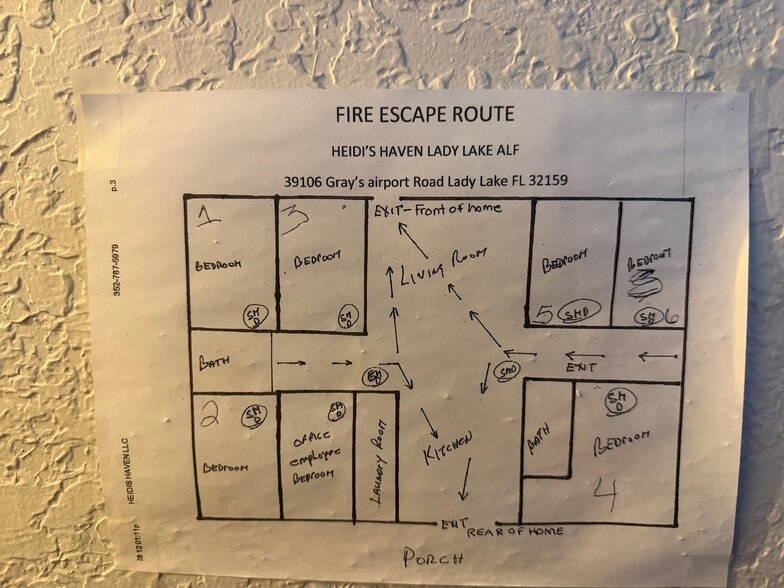 FIRE ESCAPE ROUTE
HEIDI'S HAVEN LADY LAKE ALF
39106 Gray's airport Road Lady Lake FL 32159
EXIT - Front of home
1
BEDROOM
SMD
3
BEDROOM
SMD
LIVING ROOM
BEDROOM
5
SMD
BEDROOM
SMD
6
BATH
SMD
SMD
EXIT
2
SMD
BEDROOM
SMD
OFFICE
employee
BEDROOM
LAUNDRY ROOM
KITCHEN
BATH
SMD
BEDROOM
4
EXIT REAR OF HOME
PORCH
p.3
352-787-5979
HEIDIS HAVEN LLC